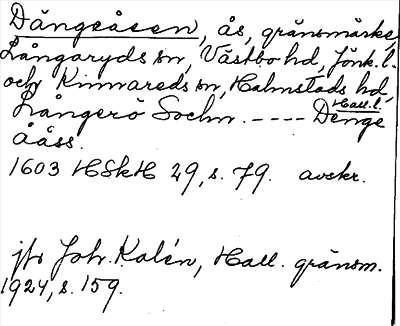 Dängeåsen, ås, gränsmärke,
Långaryds sn, Västbo hd, Jönk. l.
och Kinnareds sn, Halmstads hd,
Hall. l.
Långerö Sochn. ---- Denge
Ååss.
1603 HSkH 29, s. 79. avskr.
jfr Joh. Kalén, Hall. gränsm.
1924, s. 159.